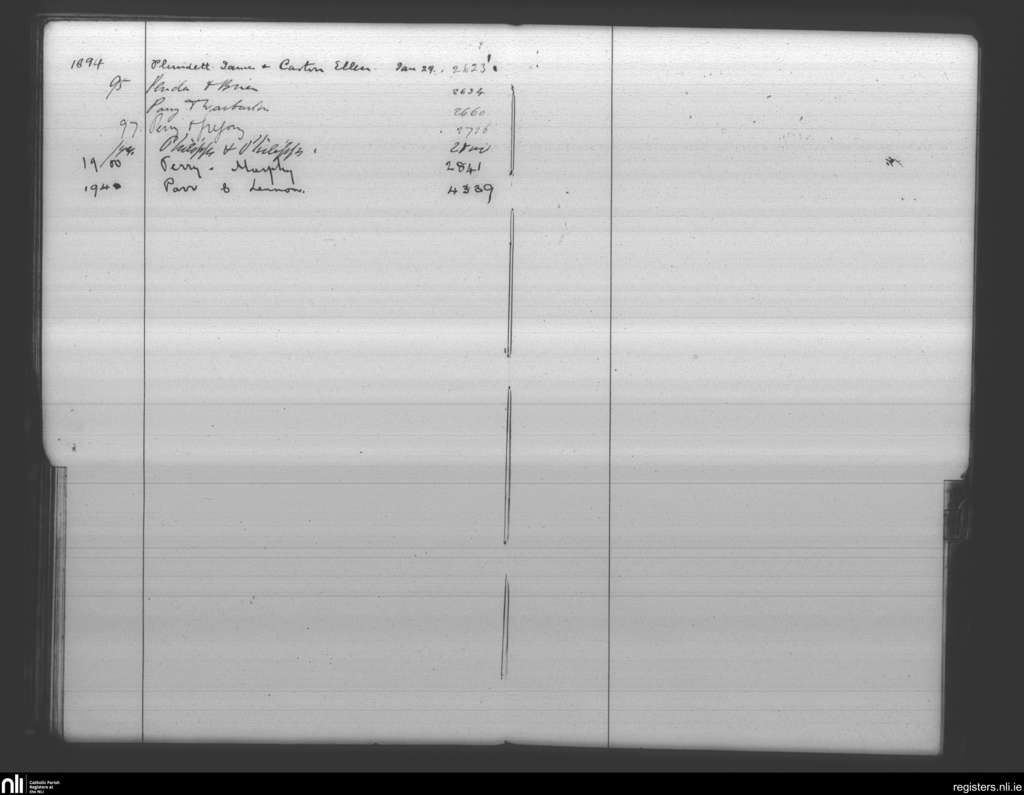 1894 Plundett James & Carton Ellen. Jan 29. 2623
95 & Brien 2634
Parry & Warburton 2660
97. Perry & Gregory 2716
/98. Philipps & Philipps.
1900 Perry - Murphy 2841
1940 Parr & Lennon. 4339
nli Catholic Parish
Registers at
the NLI
registers.nli.ie